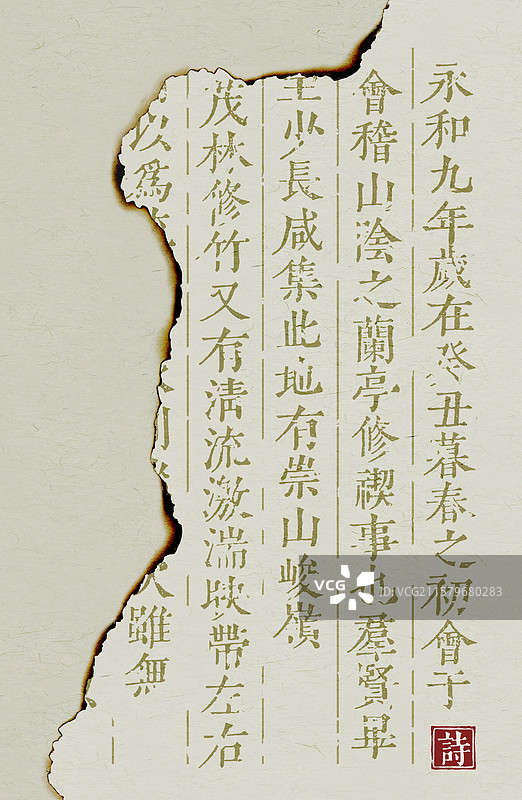 永和九年歲在癸丑暮春之初會于
會稽山陰之蘭亭修禊事也羣賢畢
至少長咸集此地有崇山峻嶺
茂林修竹又有清流激湍映帶左右
以為
雖無
詩
VCG
VCG ID:VCG211879680283